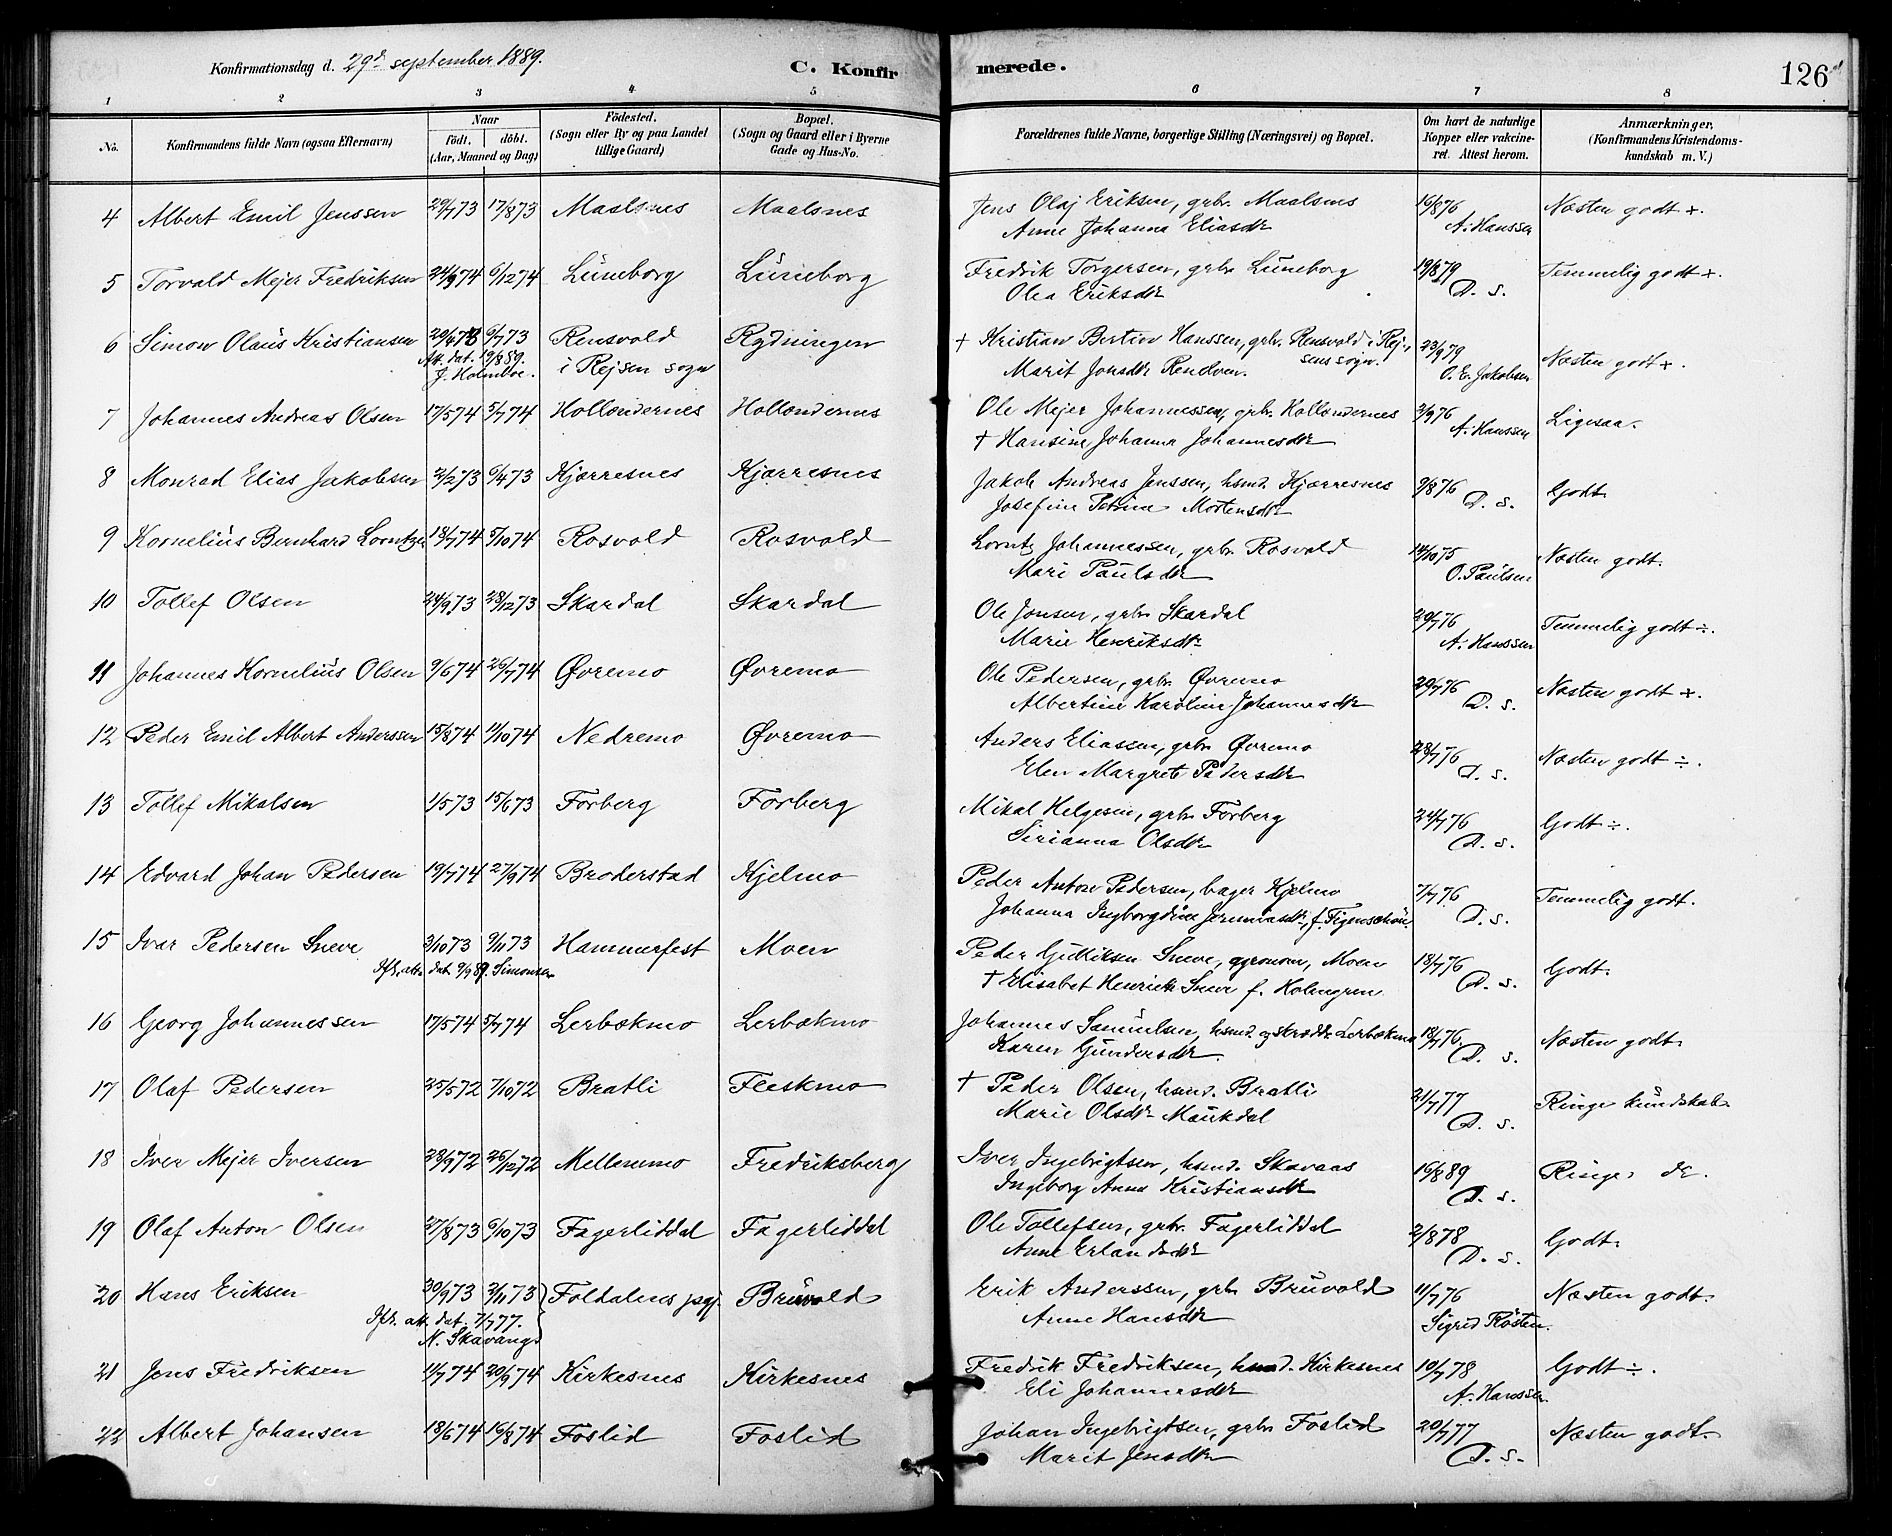 Konfirmationsdag d. 29de september 1889. C. Konfirmerede. 126
1 2 3 4 5 6 7 8
No. Konfirmandens fulde Navn (ogsaa Efternavn) Naar født. døbt. (Aar, Maaned og Dag) Fødested. (Sogn eller By og paa Landet tillige Gaard) Bopæl. (Sogn og Gaard eller i Byerne Gade og Hus-No. Forældrenes fulde Navne, borgerlige Stilling (Næringsvei) og Bopæl. Om havt de naturlige Kopper eller vakcineret. Attest herom. Anmærkninger, (Konfirmandens Kristendomskundskab m. V.)
4 Albert Emil Jenssen 29/7 73 17/8 73 Maalsnes Maalsnes Jens Olaj Eriksen, grbr. Maalsnes 16/8 76 Næsten godt +.
Anne Johanna Eliasdtr A. Hanssen
5 Torvald Mejer Fredriksen 24/9 74 6/12 74 Lüneborg Lüneborg Fredrik Torgersen, grbr. Lüneborg 19/8 79 Temmelig godt +.
Olea Eriksdtr D. s.
6 Simon Olaus Kristiansen 20/4 73 6/7 73 Rensvold Rydningen + Kristian Bertin Hanssen, grbr. Rensvold i Rej- 23/9 79 Næsten godt +.
Att. dat. 19/8 89. J. Holmboe. i Rejsen sogn sens sogn.
Marit Jonsdtr Rendven. O. E. Jakobsen
7 Johannes Andreas Olsen 17/5 74 5/7 74 Hollendernes Hollendernes Ole Mejer Johannessen, grbr. Hollendernes 2/9 76 Ligesaa.
+ Hansine Johanna Johannesdtr A. Hanssen
8 Monrad Elias Jakobsen 2/2 73 6/4 73 Kjærresnes Kjærresnes Jakob Andreas Jenssen, husmd. Kjærresnes 9/8 76 Godt.
Josefine Petrine Mortensdtr D. s.
9 Kornelius Bernhard Lorntzen 18/7 74 5/10 74 Rosvold Rosvold Lorntz Johannessen, grbr. Rosvold 14/10 75 Næsten godt.
Mari Paulsdtr O. Paulsen
10 Tollef Olsen 24/9 73 28/12 73 Skardal Skardal Ole Jonsen, grbr. Skardal 29/7 76 Temmelig godt ÷.
Marie Henriksdtr A. Hanssen
11 Johannes Kornelius Olsen 9/6 74 26/7 74 Øvremo Øvremo Ole Pedersen, grbr. Øvremo 29/7 76 Næsten godt +.
Albertine Karoline Johannesdtr D. s.
12 Peder Emil Albert Anderssen 15/8 74 11/10 74 Nedremo Øvremo Anders Eliassen, grbr. Øvremo 28/7 76 Næsten godt ÷.
Elen Margrete Pedersdtr D. s.
13 Tollef Mikalsen 1/5 73 15/6 73 Forberg Forberg Mikal Helgesen, grbr. Forberg 24/7 76 Godt ÷.
Sirianna Olsdtr D. s.
14 Edvard Johan Pedersen 19/7 74 27/9 74 Broderstad Kjelmo Peder Anton Pedersen, bager Kjelmo 7/7 76 Temmelig godt.
Johanna Ingborgdine Jeremiasdtr, f. Figenschou D. s.
15 Ivar Pedersen Sneve 3/10 73 9/11 73 Hammerfest Moen Peder Gulliksen Sneve, agronom, Moen 18/7 76 Godt.
Iflg. att. dat. 9/9 89. Simonsen + Elisabet Henriette Sneve f. Holmgren D. s.
16 Georg Johannessen 17/5 74 5/7 74 Lerbækmo Lerbækmo Johannes Samuelsen, husmd. og skrædder Lerbækmo 18/7 76 Næsten godt.
Karen Gundersdtr D. s.
17 Olaf Pedersen 25/5 72 7/10 72 Bratli Fleskmo + Peder Olsen, husmd. Bratli 21/7 77 Ringe kundskab.
Marie Olsdtr Maukdal D. s.
18 Iver Mejer Iversen 23/9 72 26/12 72 Mellemmo Fredriksberg Iver Ingebrigtsen, husmd. Skavaas 16/8 89 Ringe do.
Ingeborg Anna Kristiansdtr D. s.
19 Olaf Anton Olsen 27/8 73 6/10 73 Fagerliddal Fagerliddal Ole Tollefsen, grbr. Fagerliddal 2/8 78 Godt.
Anne Erlandsdtr D. s.
20 Hans Eriksen 30/9 73 2/11 73 Foldalens psgj. Bruvold Erik Anderssen, grbr. Bruvold 11/7 76 Næsten godt.
Iflg. att. dat. 7/7 77. N. Skavangs Anne Hansdtr Sigrid Rösten.
21 Jens Fredriksen 11/7 74 20/9 74 Kirkesnes Kirkesnes Fredrik Fredriksen, husmd. Kirkesnes 10/7 78 Godt ÷.
Eli Johannesdtr A. Hanssen
22 Albert Johansen 18/6 74 16/8 74 Foslid Foslid Johan Ingebrigtsen, grbr. Foslid 20/7 77 Næsten godt.
Marit Jensdtr D. s.